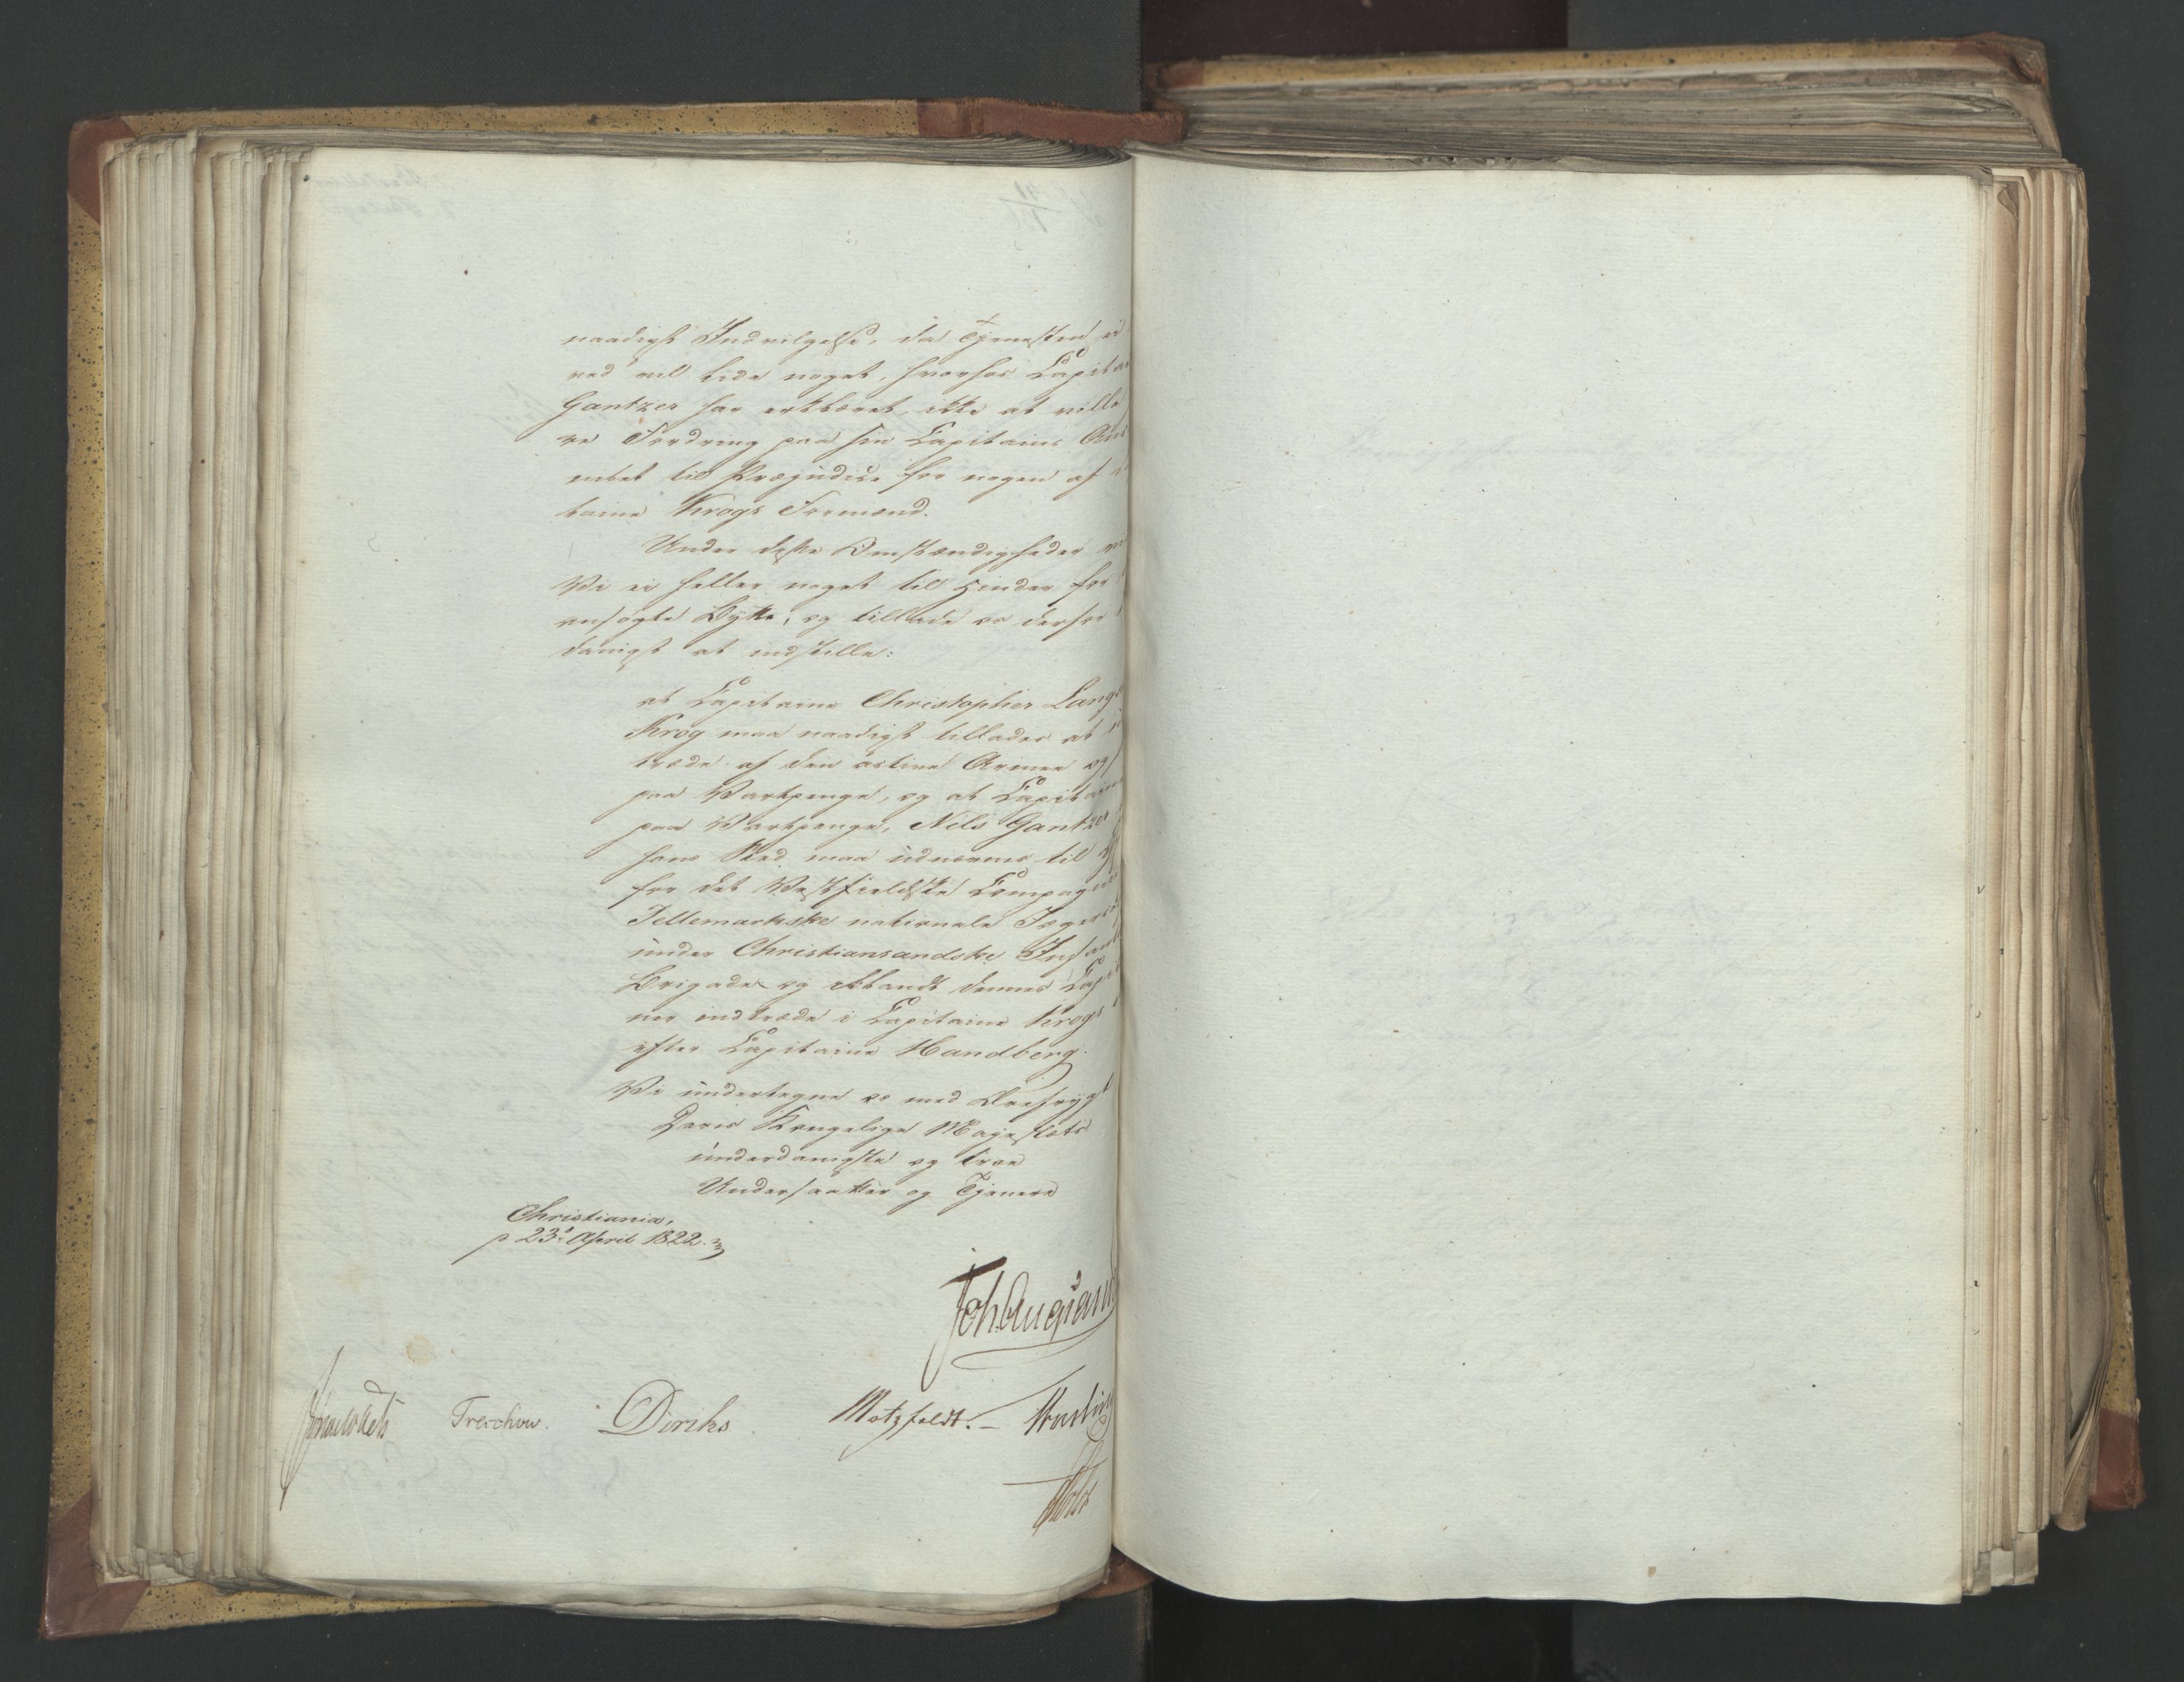 naadigst Indvilgelse, da Tjenesten ei
ved vil lide noget, hvorhos Capitai
Gantzer har erklæret, ikke at ville
re Fordring paa sin Capitains An
nitet til Præjudice for nogen af
taine Krogs Formænd.
Under disse Omstændigheder
Vi ei heller noget til Hinder for
ansøgte Bytte, og tillade os derfor
danigst at indstille:
at Capitaine Christopher Lange
Krog maa naadigst tillades at
træde af den active Armee og
paa Vartpenge, og at Capitaine
paa Vartpenge, Niels Gantzer
hans Sted maa udnævnes til
for det Vestfieldske Compagnie
Tellemarkske nationale Jæger
under Christiansandske Infant
Brigade og iblandt dennes Capi
ner indtræde i Capitaine Krogs
efter Capitaine Handberg.
Vi undertegne os med Ærefrygt
Deres Kongelige Majestæts
underdanigste og troe
Undersaatter og Tjenere
Christiania,
d 23d April 1822.
Joh. Auguand
Sommerhielm Treschow. Diriks Motzfeldt. Fasting
Holst